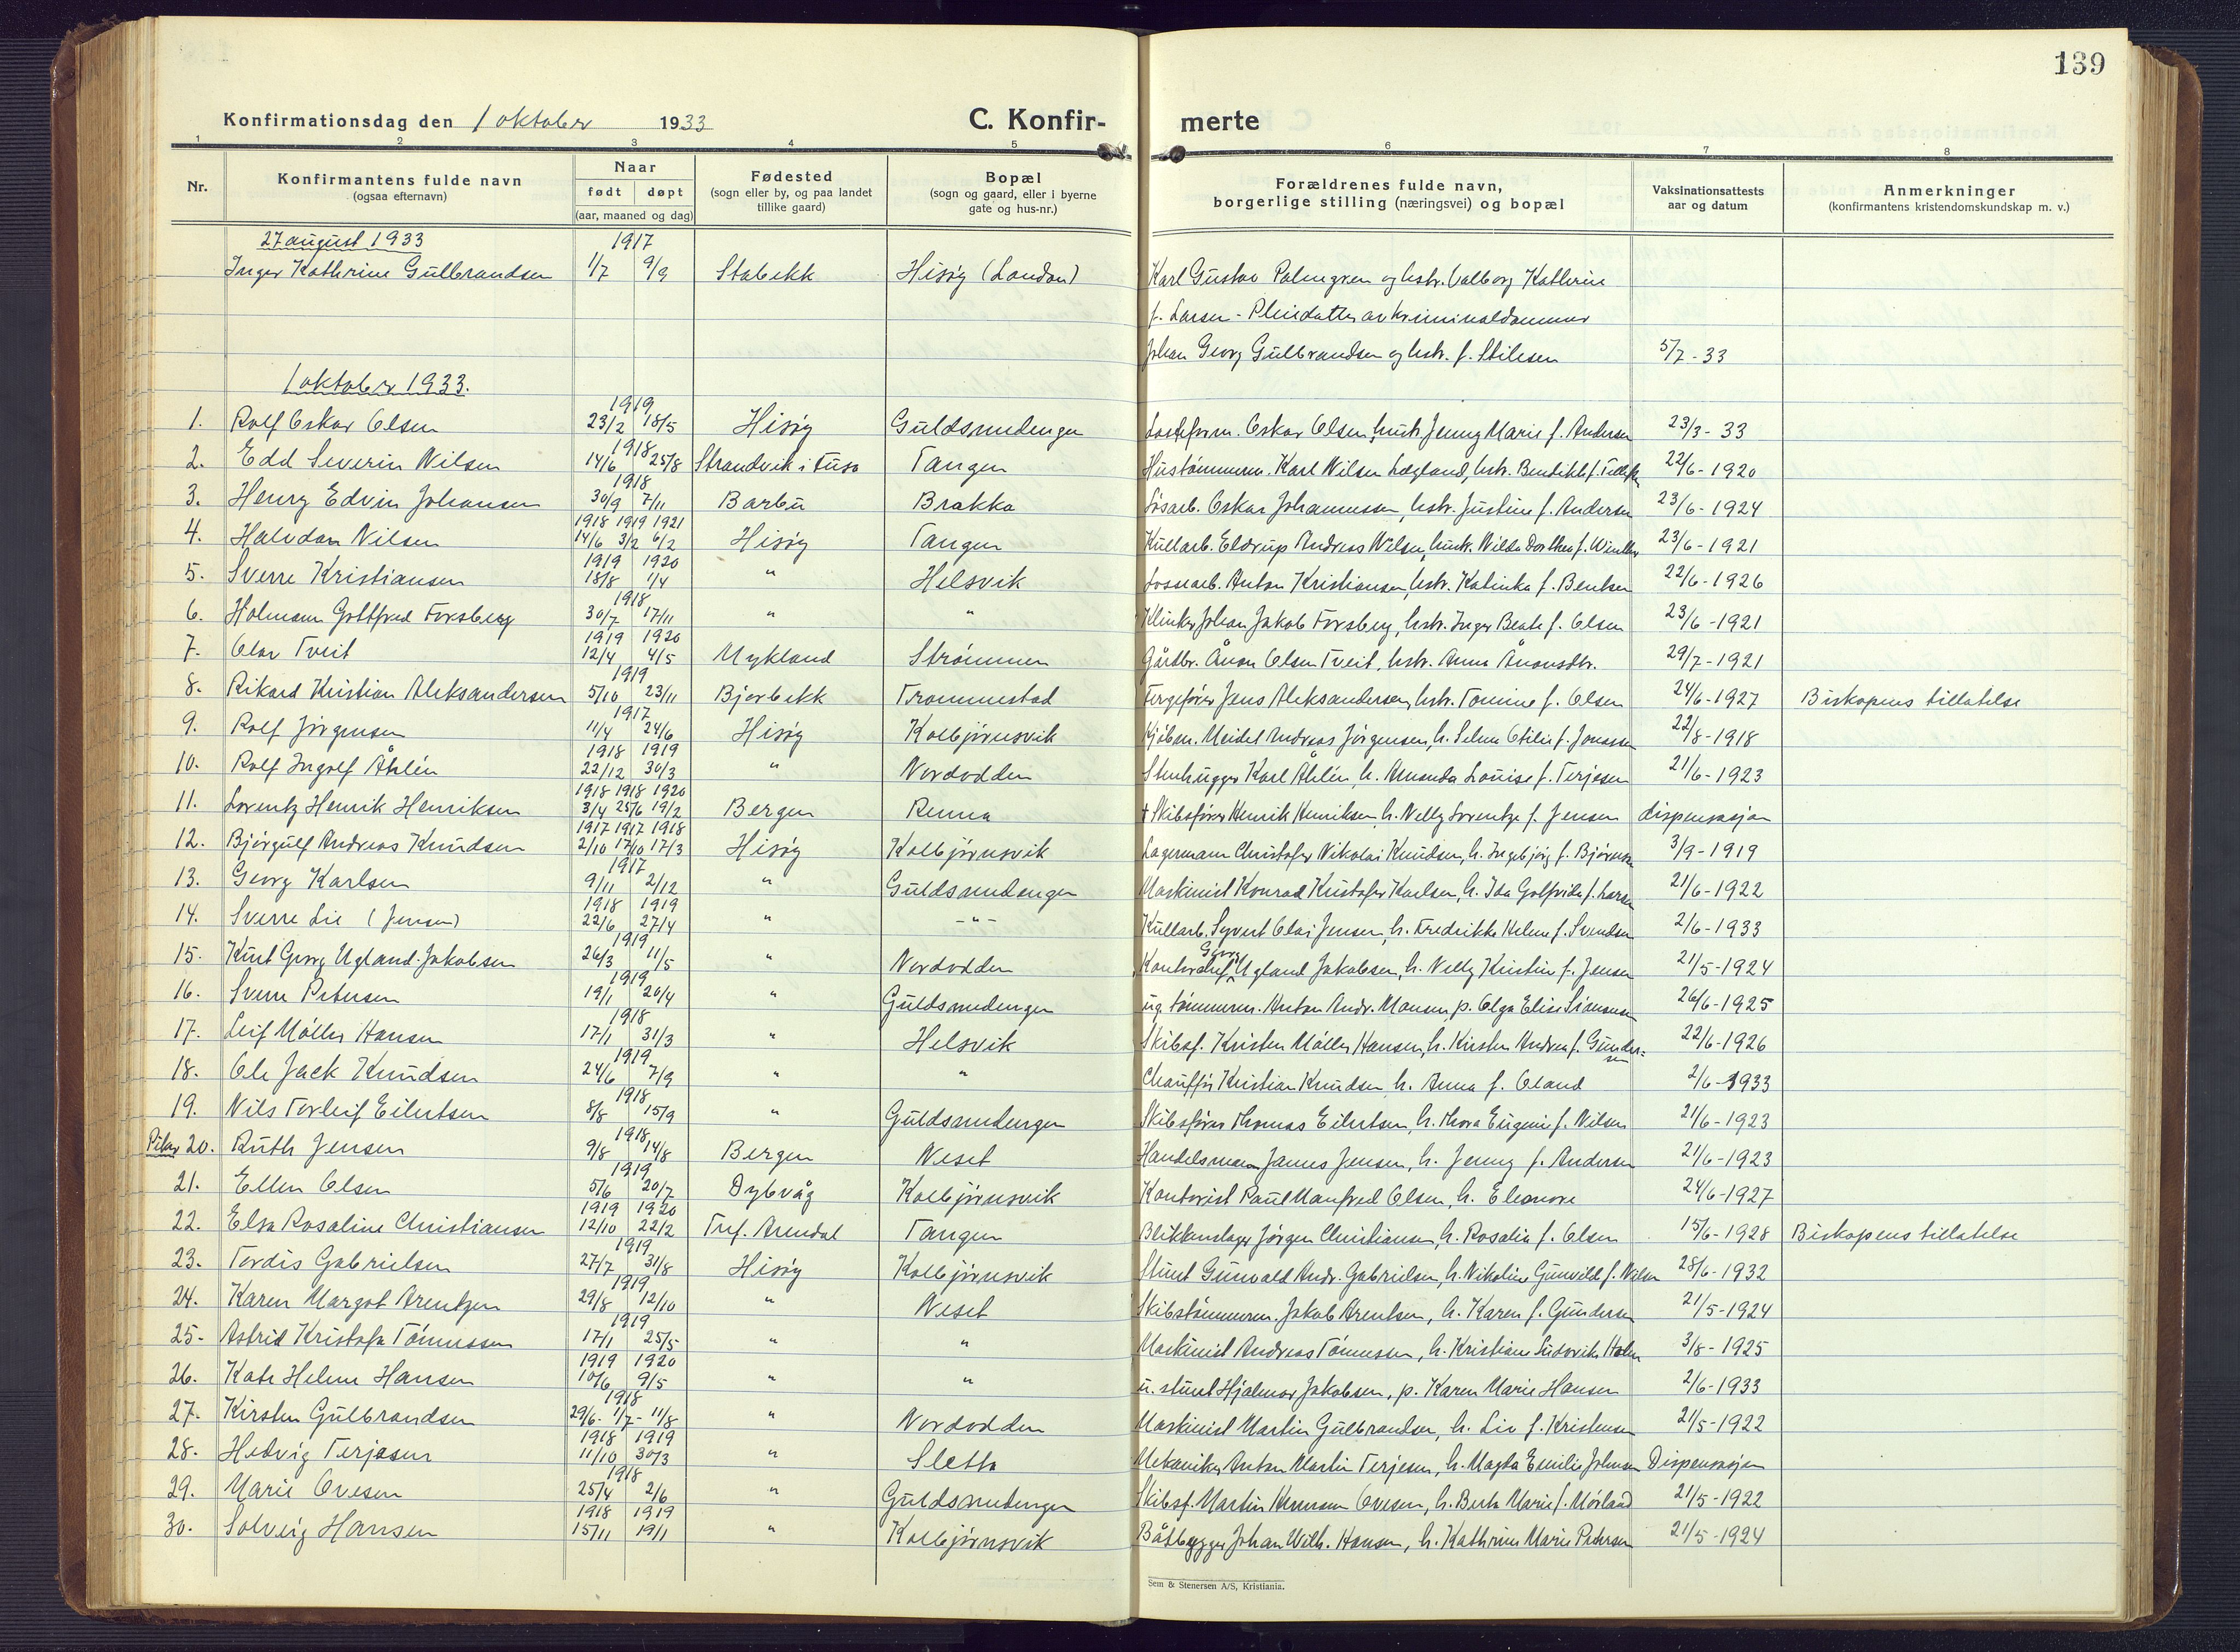 139
Konfirmationsdag den 1 oktober 1933 C. Konfir- merte
1 2 3 4 5 6 7 8
Nr. Konfirmantens fulde navn (ogsaa efternavn) Naar født døpt (aar, maaned og dag) Fødested (sogn eller by, og paa landet tillike gaard) Bopæl (sogn og gaard, eller i byerne gate og hus-nr.) Forældrenes fulde navn, borgerlige stilling (næringsvei) og bopæl Vaksinationsattests aar og datum Anmerkninger (konfirmantens kristendomskundskap m. v.)
27 august 1933 1917
Inger Kathrine Gulbrandsen 1/7 9/9 Stabekk Hisøy (London) Karl Gustav Palmgren og hstr. Valborg Kathrine
f. Larsen - Pleiedatter av kriminaldommer
Johan Georg Gulbrandsen og hstr. f. 5/7-33
1 oktober 1933.
1. Rolf Oskar Olsen 1919 23/2 18/5 Hisøy Guldsmedengen Oskar Olsen, hustr. Jenny Marie f. Andersen 23/3-33
2. Edd Severin Nilsen 1918 14/6 25/8 Strandvik i Fusa Tangen Hustømmerm. Karl Nilsen Lægland, hstr. 22/6-1920
3. Henry Edvin Johansen 1918 30/9 7/11 Barbu Brakka Løsarb. Oskar Johannessen, hstr. Justine f. Andersen 23/6-1924
4. Halvdan Nilsen 1918 1919 1921 14/6 3/2 6/2 Hisøy Tangen Kullarb. Eldrup Andreas Nilsen, hustr. Nilda Dorthea f. 23/6-1921
5. Sverre Kristiansen 1919 1920 18/8 1/4 " Helsvik Lossearb. Anton Kristiansen, hstr. Katinka f. Bentsen 22/6-1926
6. Holmann Gottfred Forsberg 1918 30/7 17/11 " " Klinker Johan Jakob Forsberg, hstr. Inger Beate f. Olsen 23/6-1921
7. Olav Tveit 1919 1920 12/4 4/5 Mykland Strømmen Gårdbr. Ånon Olsen Tveit, hstr. Anna Ånonsdtr. 29/7-1921
8. Rikard Kristian Aleksandersen 1919 5/10 23/11 Bjorbekk Trommestad Fergefører Jens Aleksandersen, hstr. Tomine f. Olsen 24/6-1927 Biskopens tillatelse
9. Rolf Jørgensen 1917 11/4 24/6 Hisøy Kolbjørnsvik Kjøbm. Meidel Andreas Jørgensen, h. Selma Otilie f. Jonassen 22/8-1918
10. Rolf Ingolf Åhlén 1918 1919 22/12 30/3 " Nordodden Stenhugger Karl Åhlén, h. Amanda Louise f. Terjesen 21/6-1923
11. Lorentz Henrik Henriksen 1918 1918 1920 3/4 25/6 19/2 Bergen Renna † Skibsfører Henrik Henriksen, h. Nelly Lorentze f. Jensen dispensasjon
12. Bjørgulf Andreas Knudsen 1917 1917 1918 2/10 17/10 17/3 Hisøy Kolbjørnsvik Lagermann Christofer Nikolai Knudsen, h. Ingebjørg f. 3/9-1919
13. Georg Karlsen 1917 9/11 2/12 " Guldsmedengen Maskinist Konrad Kristofer Karlsen, h. Ida Golfrida f. Larsen 21/6-1922
14. Sverre Lie (Jensen) 1918 1919 22/6 27/4 " -"- Kullarb. Syvert Olai Jensen, h. Fredrikke Helene f. Svendsen 2/6-1933
15. Knut Georg Ugland-Jakobsen 1919 26/3 11/5 " Nordodden Kontorchef Georg Ugland Jakobsen, h. Nelly Kirstine f. Jensen 21/5-1924
16. Sverre Petersen 1919 19/1 20/4 " Guldsmedengen ug. tømmerm. Anton Andr. Monsen, p. Olga Elise Simonsen 26/6-1925
17. Leif Møller Hansen 1918 17/1 31/3 " Helsvik Skibsf. Kristen Møller Hansen, h. Kirsten Andrea f. Gunder=sen 22/6-1926
18. Ole Jack Knudsen 1919 24/6 7/9 " " Chauffør Kristian Knudsen, h. Anna f. Oland 2/6-1933
19. Nils Torleif Eilertsen 1918 8/8 15/9 " Guldsmedengen Skibsfører Thomas Eilertsen, h. Thora Eugenie f. Nilsen 21/6-1923
Piker 20. Ruth Jensen 1918 9/8 14/8 Bergen Neset Handelsmann James Jensen, h. Jenny f. Andersen 21/6-1923
21. Ellen Olsen 1919 5/6 20/7 Dybvåg Kolbjørnsvik Kontorist Paul Manfred Olsen, h. Eleonore 24/6-1927
22. Elsa Rosaline Christiansen 1919 1920 12/10 22/2 Tref. Arendal Tangen Blikkenslager Jørgen Christiansen, h. Rosalie f. Olsen 15/6-1928 Biskopens tillatelse
23. Tordis Gabrielsen 1919 27/7 31/8 Hisøy Kolbjørnsvik Stuert Gunvald Andr. Gabrielsen, h. Nikoline Gunvilde f. Nilsen 28/6-1932
24. Karen Margot Arentzen 1919 29/8 12/10 " Neset Skibstømmerm. Jakob Arentsen, h. Karen f. Gundersen 21/5-1924
25. Astrid Kristofa Tønnessen 1919 17/1 25/5 " " Maskinist Andreas Tønnessen, h. Kristiane Ludovike Holm 3/8-1925
26. Kate Helene Hansen 1919 1920 10/6 9/5 " " u. stuert Hjalmar Jakobsen, p. Karen Marie Hansen 2/6-1933
27. Kirsten Gulbrandsen 1918 29/6- 1/7- 11/8 " Nordodden Maskinist Martin Gulbrandsen, h. Liv f. Kristensen 21/5-1922
28. Hedvig Terjesen 1918 1919 11/10 30/3 " Sletta Mekaniker Anton Martin Terjesen, h. Magda Emilie Johnsen Dispensasjon
29. Marie Ovesen 1918 25/4 2/6 " Guldsmedengen Skibsf. Martin Ovesen, h. Berta Marie f. Mørland 21/5-1922
30. Solveig Hansen 1918 1919 15/11 19/1 " Kolbjørnsvik Båtbygger Johan Wilh. Hansen, h. Kathrine Marie Pedersen 21/5-1924
Sem & Stenersen A/S, Kristiania.